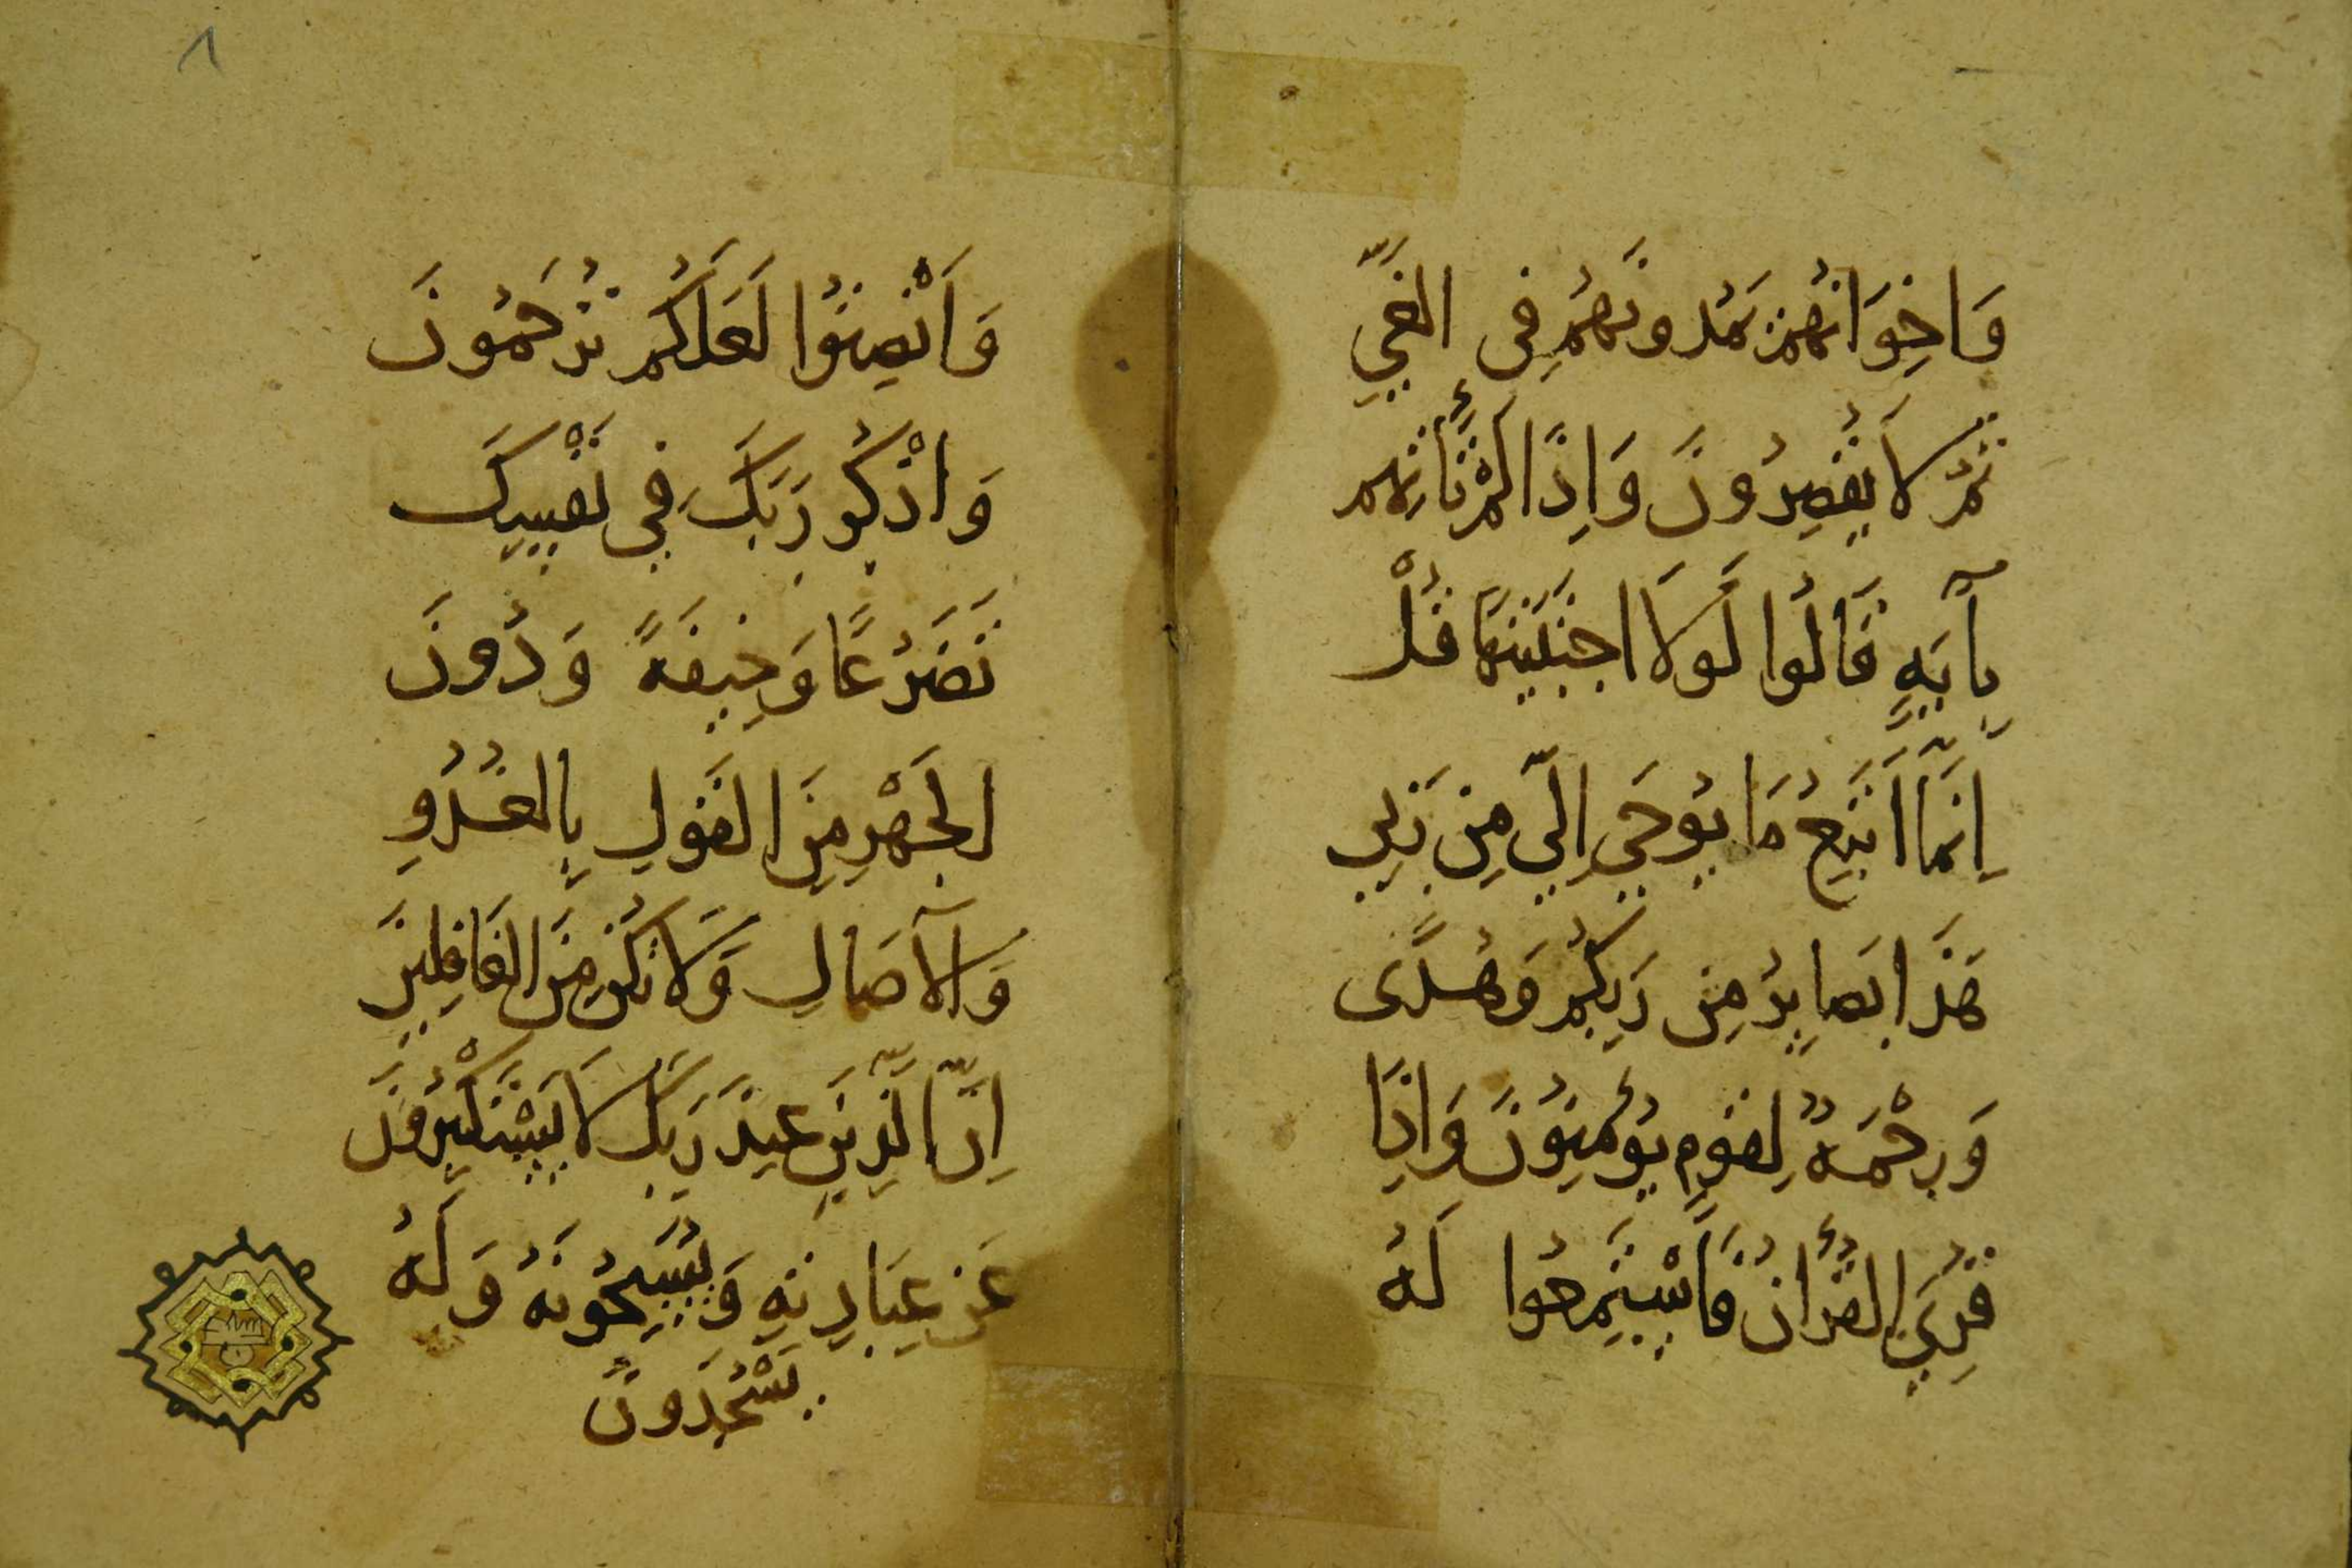 وَاِخْوَانُهُمْ يَمُدُّونَهُمْ فِى الغَيِّ
ثُمَّ لَا يُقْصِرُونَ وَاِذَا لَمْ تَأْتِهِم
بِآيَةٍ قَالُوا لَوْلَا اجْتَبَيْتَهَا قُلْ
اِنَّمَا اَتَّبِعُ مَا يُوحَي اِلَيَّ مِن رَبِّي
هَذَا بَصَايِرُ مِن رَبِّكُمْ وَهُدًى
وَرَحْمَةٌ لِقَوْمٍ يُؤْمِنُونَ وَاِذَا
قُرِيَ القُرْأَنُ فَاسْتَمِعُوا لَهُ
وَاَنْصِتُوا لَعَلَّكُم تُرْحَمُونَ
وَاذْكُر رَبَّكَ فِي نَفْسِكَ
تَضَرُّعًا وَخِيفَةً وَدُونَ
الجَهْرِ مِنَ القَوْلِ بِالغُدُوِ
وَالآصَالِ وَلَا تَكُنْ مِنَ الغَافِلِينَ
اِنَّ الَّذِينَ عِندَ رَبِّكَ لَا يَسْتَكْبِرُونَ
عَنْ عِبَادِتِهِ وَيُسَبِّحُونَهُ وَلَهُ
يَسْجُدُونَ
٨